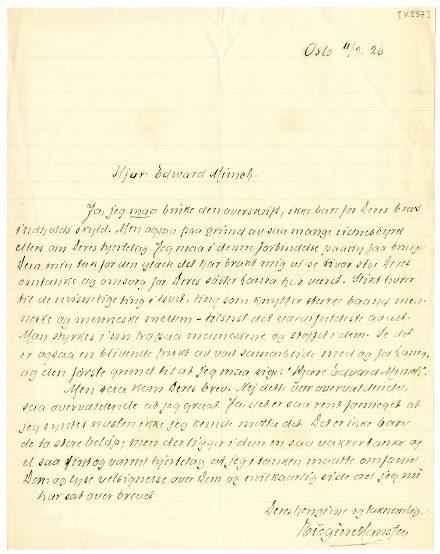 [K237]
Oslo 11/2. 26
Kjære Edvard Munch.
Ja, jeg maa bruke den overskrift, ikke bare for Deres brevs
indholds skyld. Men ogsaa paa grund av saa mange vidnesbyrd
ellers om Deres hjertelag. Jeg maa i denne forbindelse paany faa bringe
Dem min tak for den glæde det har brakt mig at se hvor stor Deres
omtanke og omsorg for Deres søster Laura har været. Slikt hører
til de uvisnelige ting i livet, ting som knytter sterke baand men-
neske og menneske mellem – tilsist det værdifuldeste av alt.
Man styrkes i sin tro paa menneskene og støtter dem. Se det
er ogsaa en blivende frukt av vort samarbeide med og for Laura,
og den første grund til at jeg maa sige: "Kjære Edvard Munch".
Men saa kom Deres brev. Nej dette var overvældende,
saa overvældende at jeg graat. Ja, det er saa rent formeget at
jeg syntes næsten ikke jeg kunde motta det. Det er ikke bare
de to store beløp; men der ligger i dem en saa vakker tanke og
et saa fint og varmt hjertelag at jeg i tanken maatte omfavne
Dem og lyse velsignelse over Dem og uvilkaarlig si de ord jeg nu
har sat over brevet.
Deres hengivne og taknemlige